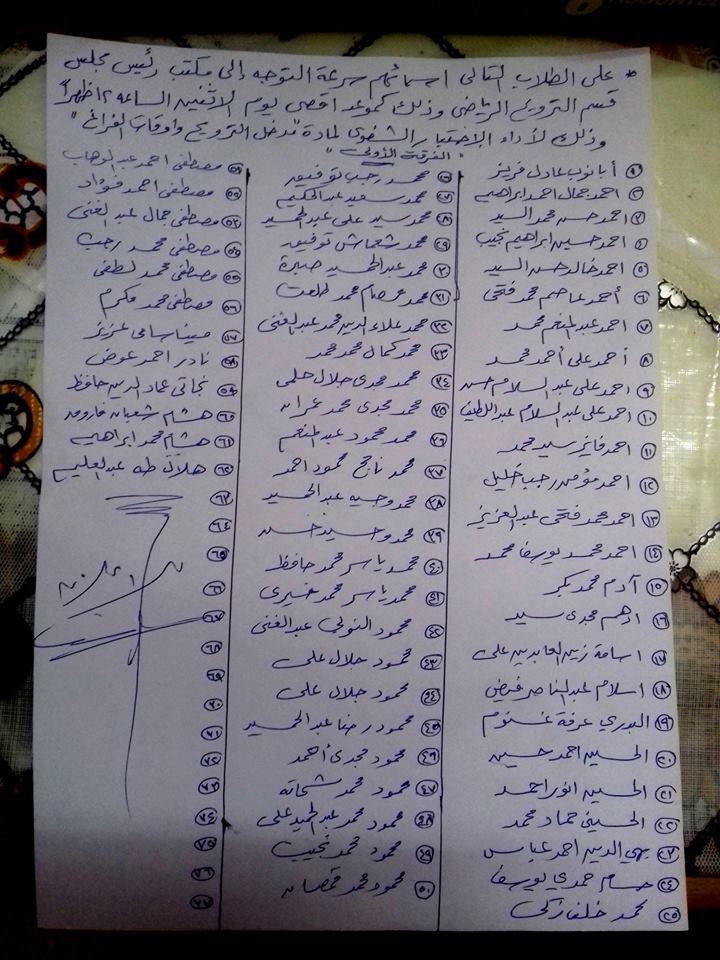 * على الطلاب التالى اسمائهم سرعة التوجه إلى مكتب رئيس مجلس
قسم الترويح الرياضى وذلك كموعد اقصى يوم الاثنين الساعه ١٢ ظهراً
وذلك لأداء الإختبار الشفوى لمادة "مدخل الترويح واوقات الفراغ"
"الفرقة الأولى"
١ أبانوب عادل فريز
٢ احمد جمال احمد ابراهيم
٣ احمد حسن محمد السيد
٤ احمد حسين ابراهيم نجيب
٥ احمد خالد حسن السيد
٦ أحمد عاصم محمد فتحى
٧ احمد عبد المنعم محمد
٨ أحمد على أحمد محمد
٩ احمد على عبد السلام حسن
١٠ احمد على عبد السلام عبد اللطيف
١١ احمد فايز سيد محمد
١٢ احمد مؤمن رجب خليل
١٣ احمد محمد فتحى عبد العزيز
١٤ احمد محمد يوسف محمد
١٥ آدم محمد بكر
١٦ ادهم مجدى سيد
١٧ اسامة زين العابدين على
١٨ اسلام عبد الناصر فيض
١٩ البدري عرفة غنوم
٢٠ الحسين احمد حسين
٢١ الحسين انور احمد
٢٢ الحسينى حماد محمد
٢٣ بهي الدين احمد عباس
٢٤ حسام حمدي يوسف
٢٥ محمد خلف زكى
٢٦ محمد رجب توفيق
٢٧ محمد سعيد عبد الحكيم
٢٨ محمد سيد على عبد الحميد
٢٩ محمد شعماش توفيق
٣٠ محمد عبد الحميد صبرة
٣١ محمد عصام محمد طلعت
٣٢ محمد علاء الدين محمد عبد الغنى
٣٣ محمد كمال محمد محمد
٣٤ محمد مجدى جلال حلمى
٣٥ محمد مجدى محمد عمران
٣٦ محمد محمود عبد المنعم
٣٧ محمد ناجح محمود احمد
٣٨ محمد وجيه عبد الحميد
٣٩ محمد وحيد حسن
٤٠ محمد ياسر محمد حافظ
٤١ محمد ياسر محمد خيرى
٤٢ محمود النوبي عبد الغنى
٤٣ محمود جلال على
٤٤ محمود جلال على
٤٥ محمود رضا عبد الحميد
٤٦ محمود مجدى أحمد
٤٧ محمود محمد شحاته
٤٨ محمود محمد عبد الحميد على
٤٩ محمود محمد نجيب
٥٠ محمود محمد قمصان
٥١ مصطفى احمد عبد الوهاب
٥٢ مصطفى احمد فؤاد
٥٣ مصطفى جمال عبد الغنى
٥٤ مصطفى محمد رجب
٥٥ مصطفى محمد لطفى
٥٦ مصطفى محمد مكرم
٥٧ مينا سامى عزيز
٥٨ نادر احمد عوض
٥٩ نجاتى عماد الدين حافظ
٦٠ هشام شعبان فاروق
٦١ هشام محمد ابراهيم
٦٢ هلال طه عبد العليم
٦٣
٦٤
٦٥
٦٦
٦٧
٦٨
٦٩
٧٠
٧١
٧٢
٧٣
٧٤
٧٥
٧٦
٧٧